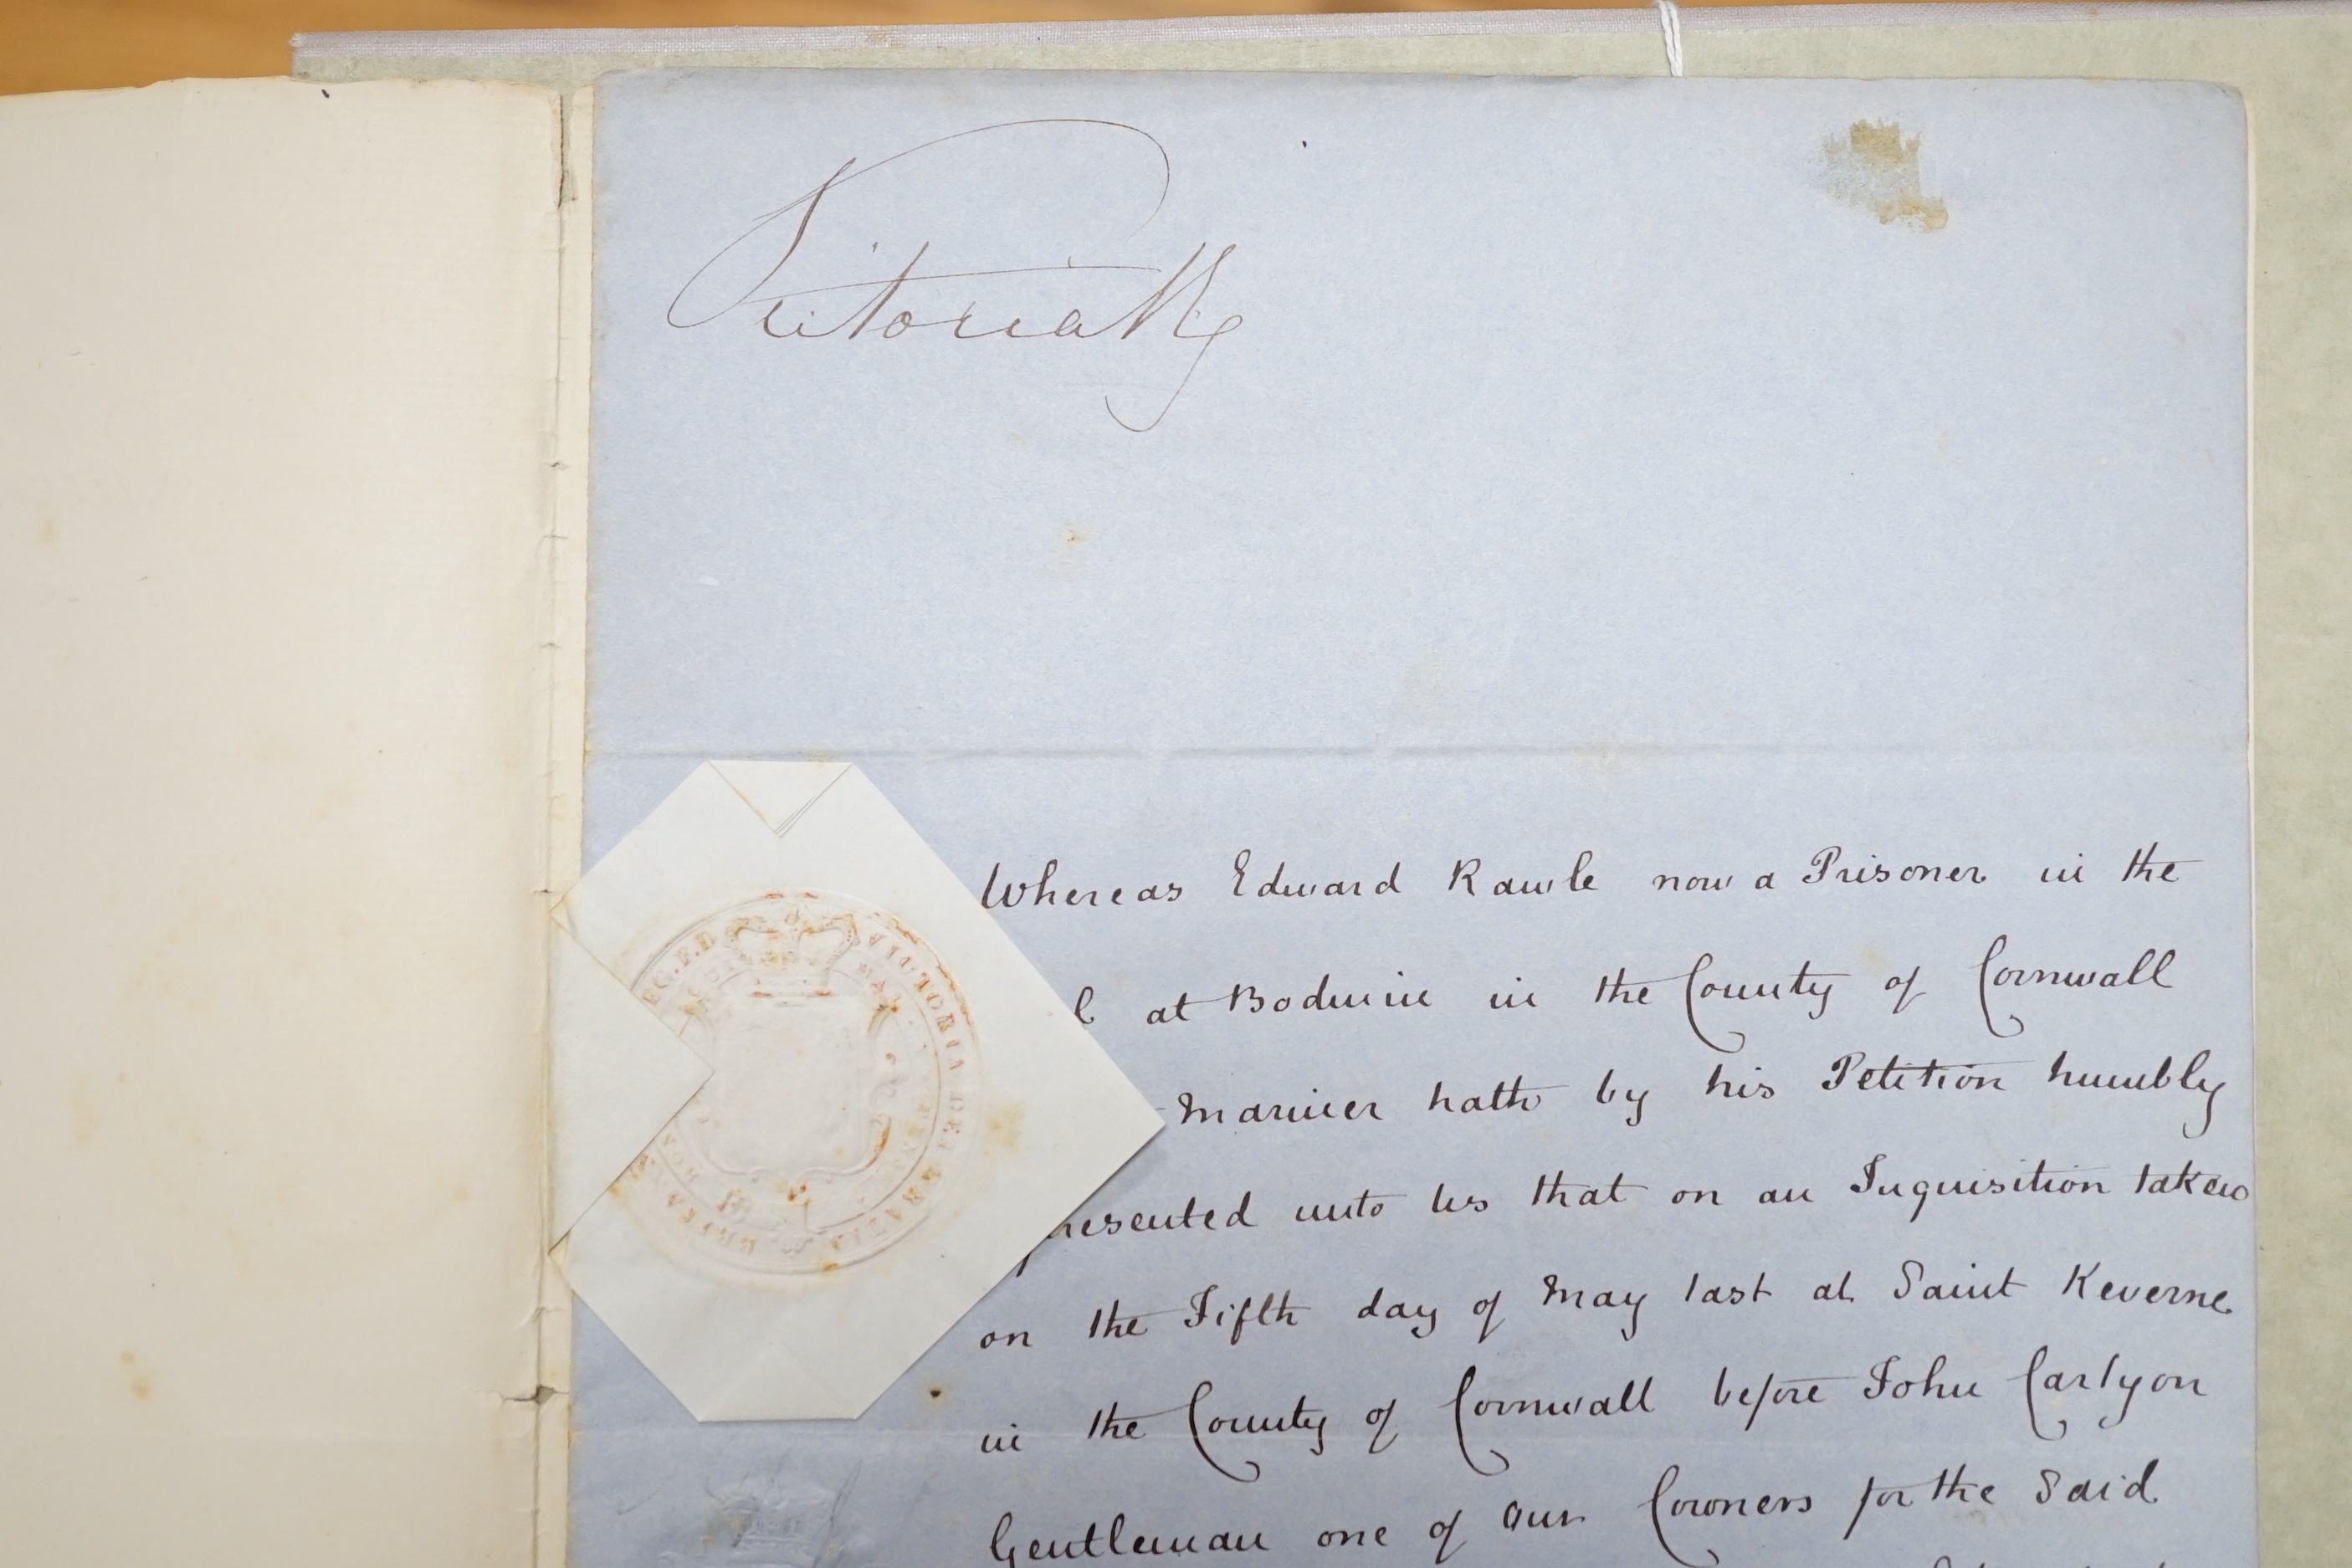 Victoria R
Whereas Edward Rawle now a Prisoner in the
l at Bodmin in the County of Cornwall
Mariner hath by his Petition humbly
presented unto Us that on an Inquisition taken
on the Fifth day of May last at Saint Keverne
in the County of Cornwall before John Carlyon
Gentleman one of our Coroners for the Said
VICTORIA DEI GRATIA BRITA
REG. F.D